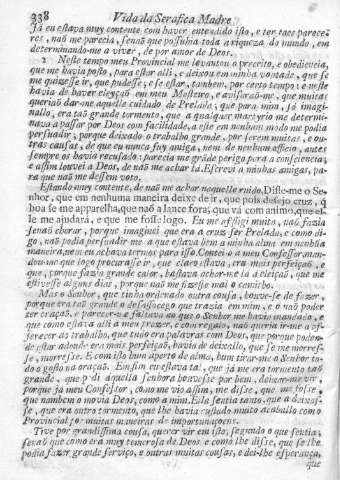 338 Vida da Serafica Madre
Já eu estava muy contente com haver entendido isto, e ter taes parece-
res, naõ me parecia, senaõ que possuhia toda a riqueza do mundo, em
determinando-me a viver, de por amor de Deos.
2 Neste tempo meu Provincial me levantou o preceito, e obediencia,
que me havia posto, para estar alli, e deixou em minha vontade, que se
me quizesse ir, que pudesse; e se estar, tambem, por certo tempo: e neste
havia de haver eleyçaõ em meu Mosteiro, e avisaraõ-me, que muitas
queriaõ dar-me aquelle cuidado de Prelada; que para mim, só imagi-
nallo, era taõ grande tormento, que a qualquer martyrio me determi-
nava a passar por Deos com facilidade, a este em nenhum modo me podia
persuadir; porque deixado o trabalho grande, por serem muitas, e ou-
tras causas, de que eu nunca fuy amiga, nem de nenhum officio, antes
sempre os havia recusado: parecia me grãde perigo para a consciencia;
e assim louvei a Deos, de naõ me achar lá. Escrevi a minhas amigas, pa-
ra que naõ me dessem voto.
Estando muy contente, de naõ me achar naquelle ruido, Disse-me o Se-
nhor, que em nenhuma maneira deixe de ir, que pois desejo cruz, q̃
boa se me apparelha, que naõ a lance fora; que vá com animo, que el-
le me ajudará, e que me fosse logo. Eu me affligi muito, naõ fazia
senaõ chorar, porque imaginei que era a cruz ser Prelada, e como di-
go, naõ podia persuadir me a que estava bem a minha alma em nenhũa
maneira, nem eu achava termos para isso. Contei-o a meu Confessor man-
dou-me que logo procurasse ir, que claro estava, era mais perfeiçaõ, e
que, porque fazia grande calor, bastava achar-me lá à eleiçaõ, que me
estivesse alguns dias, porque naõ me fizesse mal o caminho.
Mas o Senhor, que tinha ordenado outra cousa, houve-se de fazer,
porque era taõ grande o desassocego que trazia em mim, e o naõ poder
ter oraçaõ, e parecer-me faltava ao que o Senhor me havia mandado, e
que como estava alli a meu prazer, e com regalo, naõ queria ir-me a of-
ferecer ao trabalho, que tudo era palavras com Deos, que porque poden-
do estar adonde era mais perfeiçaõ, havia de deixallo, que se me morres-
se, morresse. E com isto hum aperto de alma, hum tirar-me o Senhor to-
do o gosto na oraçaõ. Emfim eu estava tal, que já me era tormento taõ
grande, que pedi áquella senhora houvesse por bem, deixar-me vir,
porque já meu Confessor, como me vio assim, me disse, que me fosse,
que tambem o movia Deos, como a mim. Ella sentia tanto, que a deixas-
se, que era outro tormento, que lhe havia custado muito acaballo com o
Provincial por muitas maneiras de importunaçoens.
Tive por grandissima cousa, querer vir em isto, segundo o que sentia,
senaõ que como era muy temerosa de Deos, e como lhe disse, que se lhe
podia fazer grande serviço, e outras muitas cousas, e dei-lhe esperança,
que